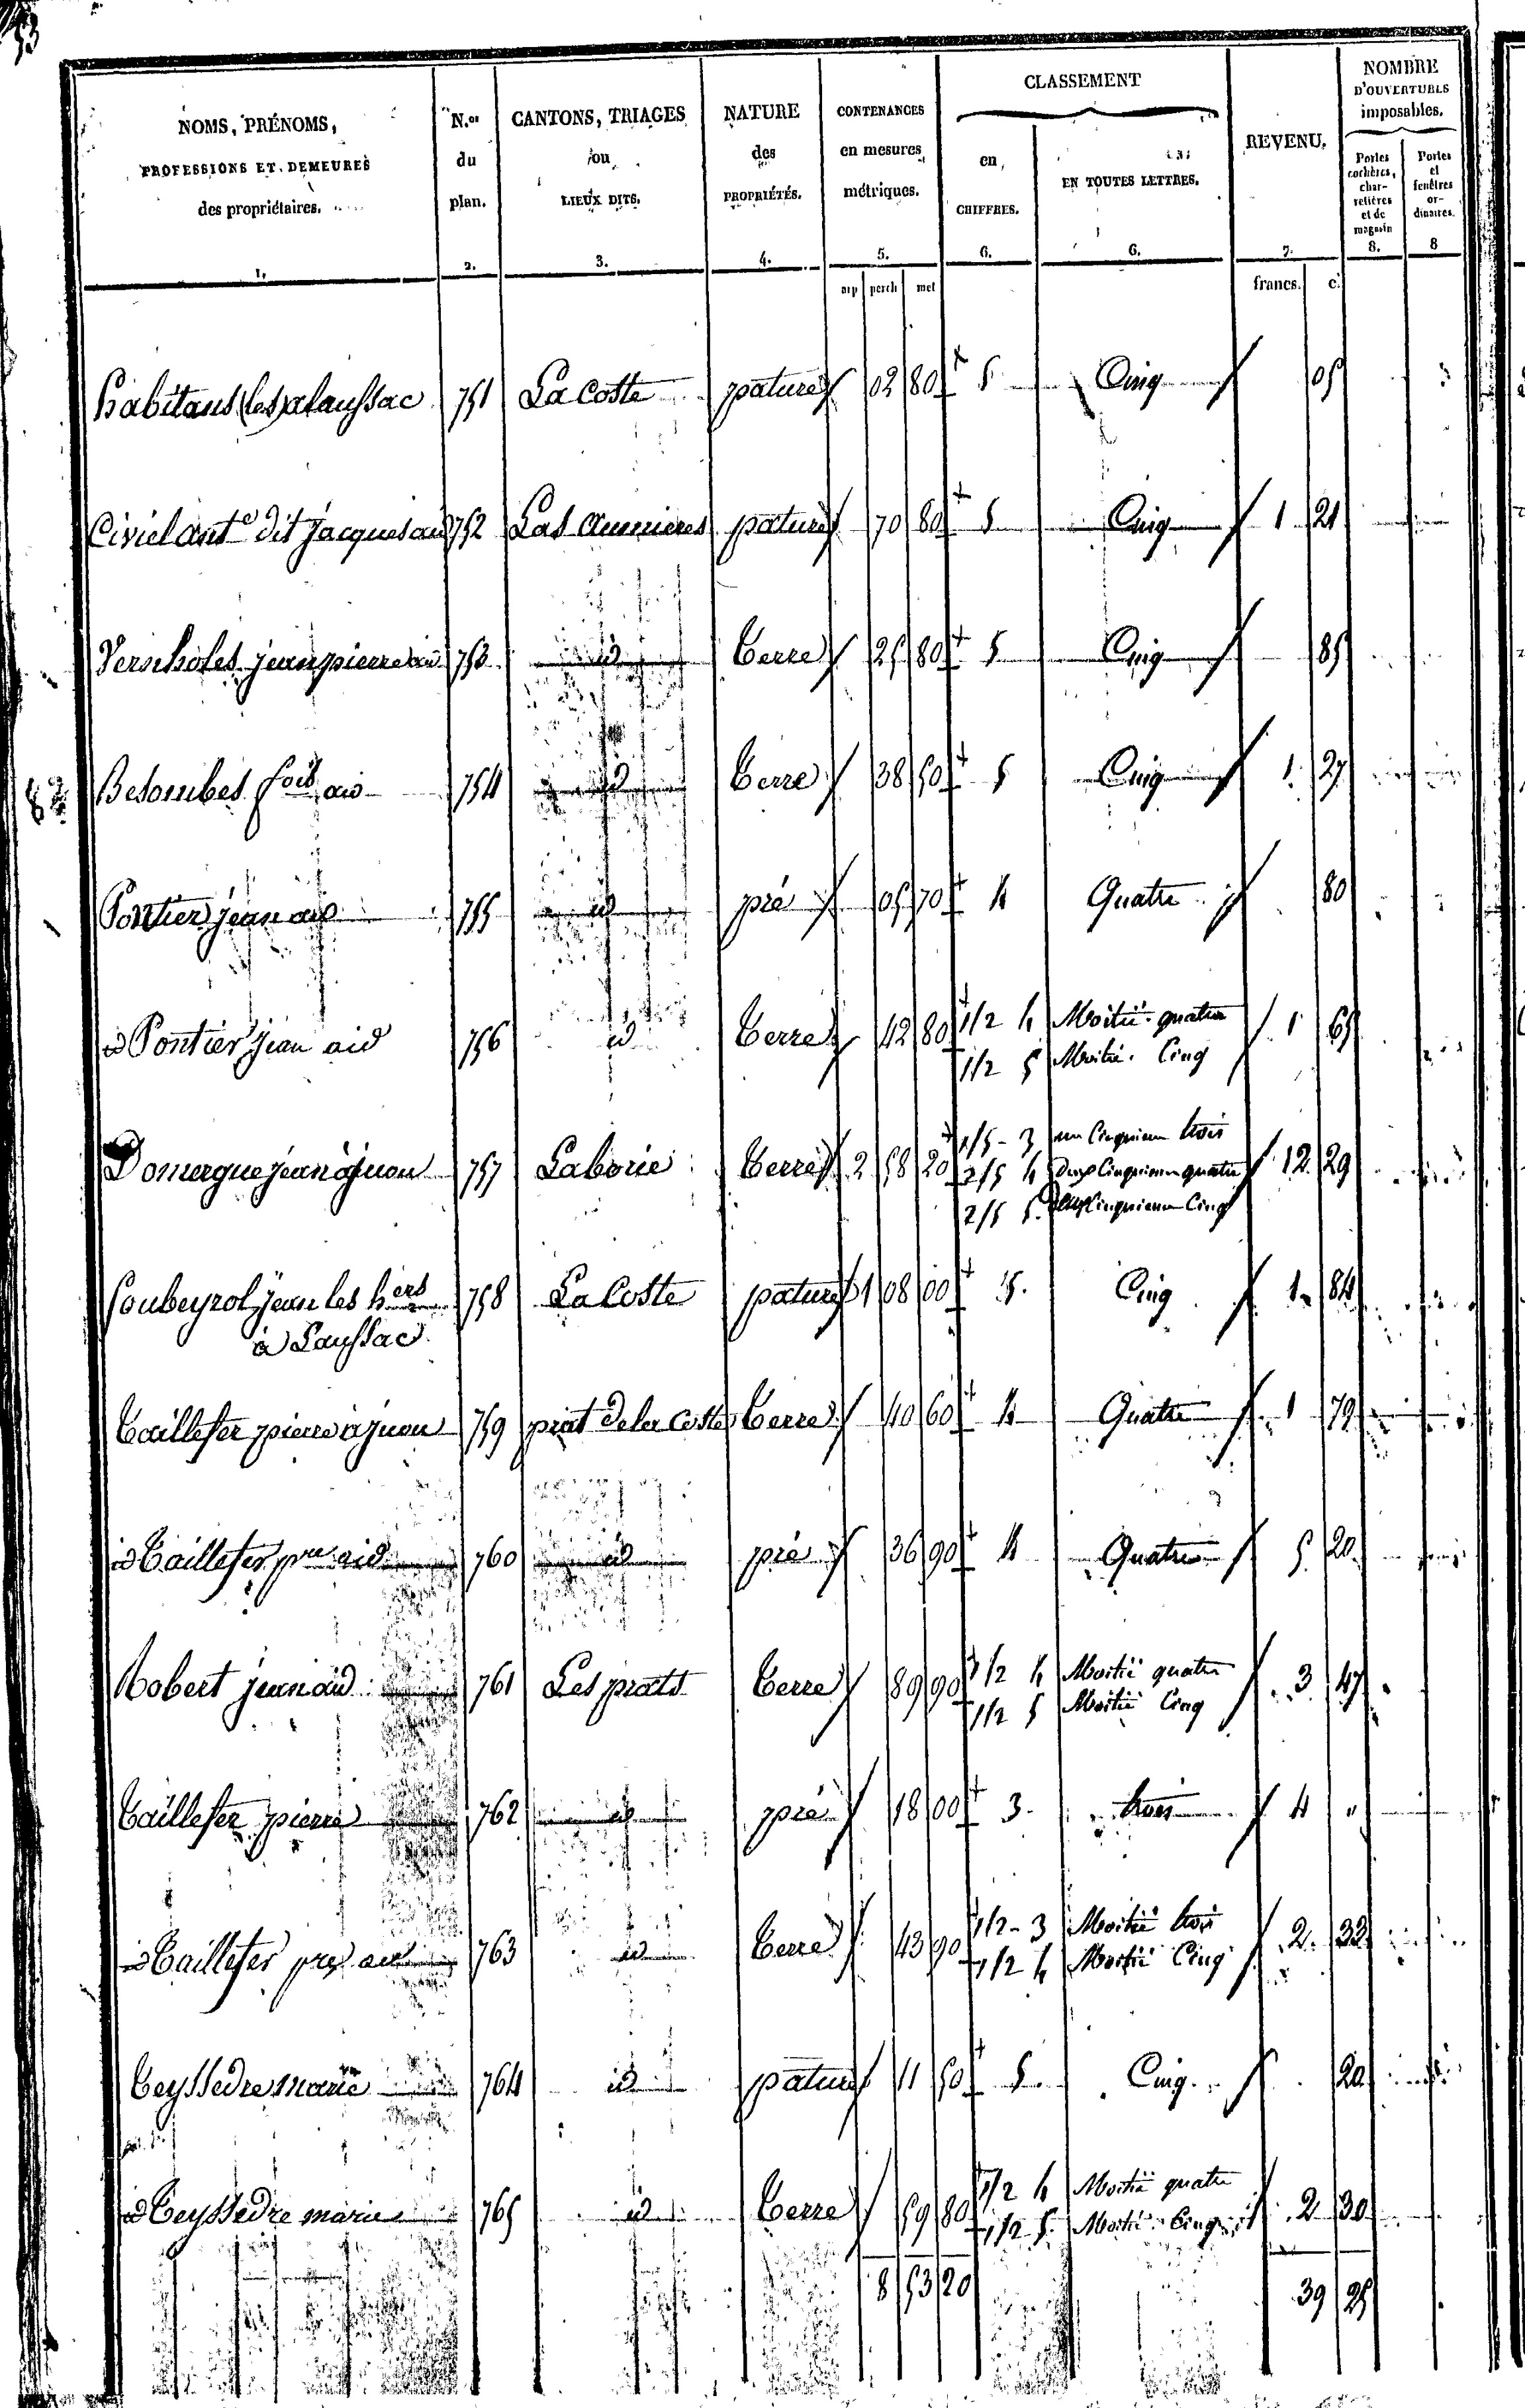 53
NOMS, PRÉNOMS, PROFESSIONS ET DEMEURES des propriétaires. 1.
N.os du plan. 2.
CANTONS, TRIAGES ou LIEUX DITS. 3.
NATURE des PROPRIÉTÉS. 4.
CONTENANCES en mesures métriques. 5.
CLASSEMENT
en CHIFFRES. 6.
EN TOUTES LETTRES. 6.
REVENU. 7.
NOMBRE D'OUVERTURES imposables.
Portes cochères, charretières et de magasin 8.
Portes et fenêtres ordinaires. 8
arp perch met francs. c.
habitans (les) a laussac 751 La Coste pature 02 80 5 Cinq 05
Civiel ant.e dit jacques 752 Las pature 70 80 5 Cinq 1 21
jean pierre 753 id terre 25 80 5 Cinq 85
Besombes fois aid 754 id terre 38 50 5 Cinq 1 27
Pontier jean aid 755 id pré 05 70 4 Quatre 80
id Pontier jean aid 756 id terre 42 80 1/2 4 Moitié quatre 1 65
1/2 5 Moitié Cinq
Domergue jean à juou 757 Laborie terre 2 58 20 1/5 3 un Cinquieme trois 12 29
2/5 4 deux Cinquieme quatre
2/5 5 deux Cinquieme Cinq
Soubeyrol jean les hers 758 La Coste pature 1 08 00 5 Cinq 1 84
à Laussac
taillefer pierre à juou 759 prat de la Coste terre 40 60 4 Quatre 1 79
id taillefer pre aid 760 id pré 36 90 4 Quatre 5 20
Robert jean aid 761 Les prats terre 89 90 1/2 4 Moitié quatre 3 47
1/2 5 Moitié Cinq
taillefer pierre 762 id pré 18 00 3 trois 4 "
id taillefer pre aid 763 id terre 43 90 1/2 3 Moitié trois 2 32
1/2 4 Moitié Cinq
teyssedre marie 764 id pature 11 50 5 Cinq 20
id teyssedre marie 765 id terre 59 80 1/2 4 Moitié quatre 2 30
1/2 5 Moitié Cinq
8 53 20 39 25